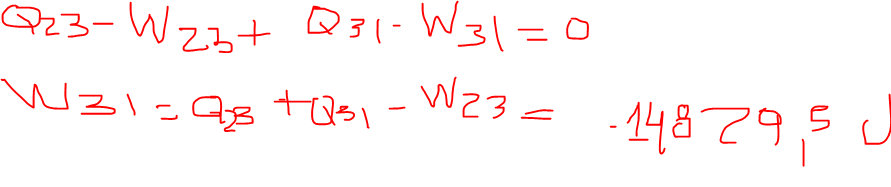 Q23 - W23 + Q31 - W31 = 0
W31 = Q23 + Q31 - W23 = -14879,5 J